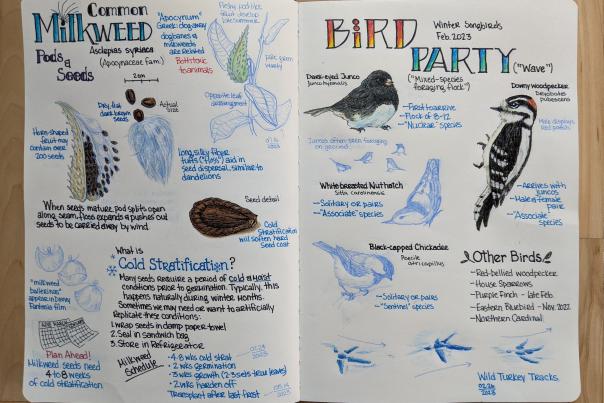 Common
MILKWEED
Pods &
Seeds
Asclepias syriaca
(Apocynaceae Fam.)
"Apocynum"
Greek: dog away
dogbanes &
milkweeds
are related
Both toxic
to animals
Fleshy pod-like
fruit develop
late summer
Opposite leaf
arrangement
2cm
Dry, flat
dark brown
seeds
Actual
size
Horn-shaped
fruit may
contain over
200 seeds
Long silky fiber
tufts ("floss") aid in
seed dispersal, similar to
dandelions
When seeds mature, pod splits open
along seam. Floss expands & pushes out
seeds to be carried away by wind
Seed detail
Cold
Stratification
will soften hard
seed coat
"milkweed
ballerinas"
appear in Disney
Fantasia film
What is
Cold Stratification?
Many seeds require a period of cold & moist
conditions prior to germination. Typically, this
happens naturally during winter months.
Sometimes we may want to artificially
replicate these conditions:
1. Wrap seeds in damp paper towel
2. Seal in sandwich bag
3. Store in Refrigerator
Plan Ahead!
Milkweed seeds need
4 to 8 weeks
of cold stratification
Milkweed
Schedule
• 4-8 wks cold strat
• 2 wks germination
• 3 wks growth (2-3 sets true leaves)
• 2 wks harden off
Transplant after last frost
BIRD
PARTY
("Wave")
Winter Songbirds
Feb. 2023
("Mixed-species
foraging flock")
Dark-eyed Junco
Junco hyemalis
—First to arrive
—Flock of 8-12
—"Nuclear" species
Juncos often seen foraging
on ground
Downy woodpecker
Dryobates
pubescens
Male displays
red patch
—Arrives with
juncos
—Male & female
pair
—"Associate"
species
White breasted Nuthatch
Sitta carolinensis
—Solitary or pairs
—"Associate" species
Black-capped Chickadee
Poecile
atricapillus
—Solitary or pairs
—"Sentinel" species
Other Birds
—Red-bellied woodpecker
—House Sparrows
—Purple Finch - late Feb
—Eastern Bluebird - Nov. 2022
—Northern Cardinal
Wild Turkey Tracks
2023